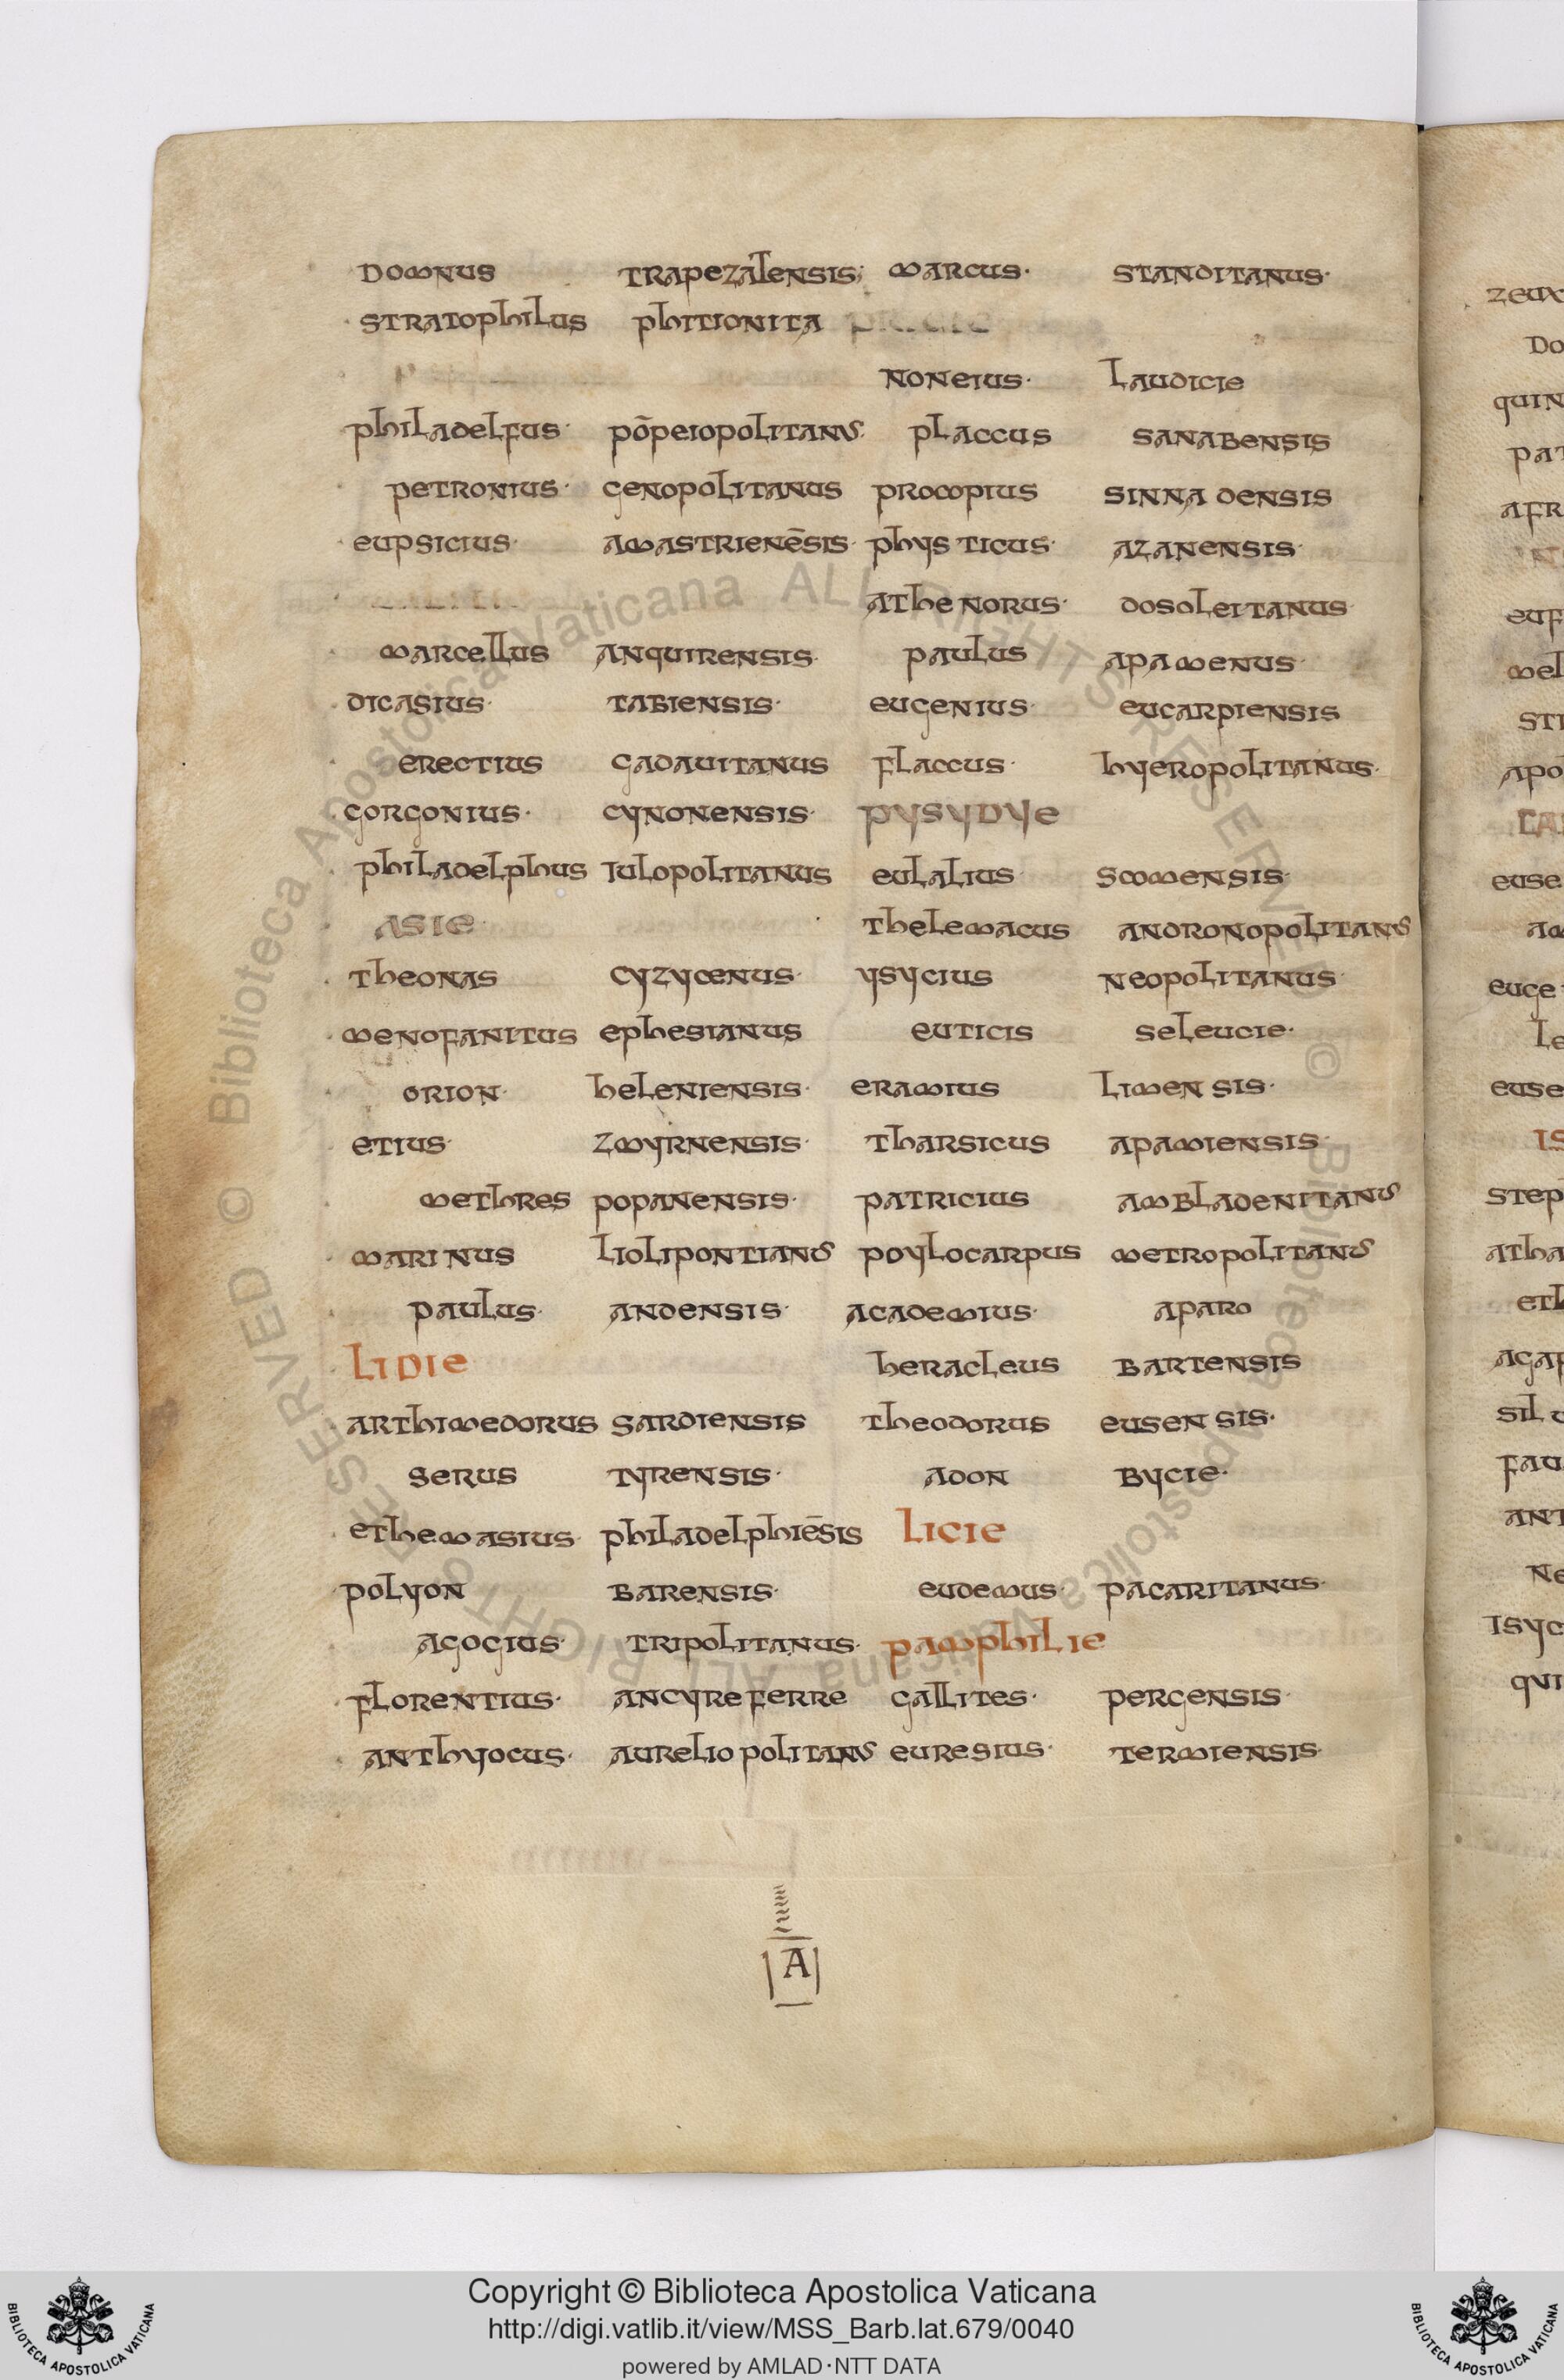 domnus trapezalensis; marcus· standitanus·
stratophilus phitionita
noneius· laudicie
philadelfus· põpeiopolitanus· placcus sanabensis
petronius· genopolitanus procopius sinna densis
eupsicius· amastrienēsis· phys ticus· azanensis·
athenorus· dosoleitanus·
marcellus anquirensis· paulus apamenus·
dicasius· tabiensis· eugenius· eucarpiensis
erectius gadauitanus flaccus· hyeropolitanus·
gorgonius· cynonensis· pysydye
philadelphus iulopolitanus eulalius· scomensis·
asie· thelemacus andronopolitanus
theonas cyzycenus· ysycius neopolitanus·
menofanitus ephesianus euticis seleucie·
orion· heleniensis· eramius limen sis·
etius· zmyrnensis· tharsicus apamiensis·
methres popanensis· patricius ambladenitanus
mari nus liolipontianus poylocarpus metropolitanus
paulus· andensis· academius· aparo
lidie heracleus bartensis
arthimedorus sardiensis theodorus eusen sis·
serus tyrensis· adon bycie·
ethemasius· philadelphiēsis licie
polyon barensis· eudemus· pacaritanus·
agogius· tripolitanus· pamphilie
florentius· ancyre ferre gallites· pergensis·
anthyocus· aurelio politanus euresius· termiensis·
A
zeux
do
quin
pat
afr
euf
mel
sti
apo
euse
am
euge
le
euse
is
step
atha
eth
agap
sil u
fau
ant
ne
isyc
qui
Copyright © Biblioteca Apostolica Vaticana
http://digi.vatlib.it/view/MSS_Barb.lat.679/0040
powered by AMLAD·NTT DATA
BIBLIOTECA APOSTOLICA VATICANA
BIBLIOTECA APOSTOLICA VATICANA